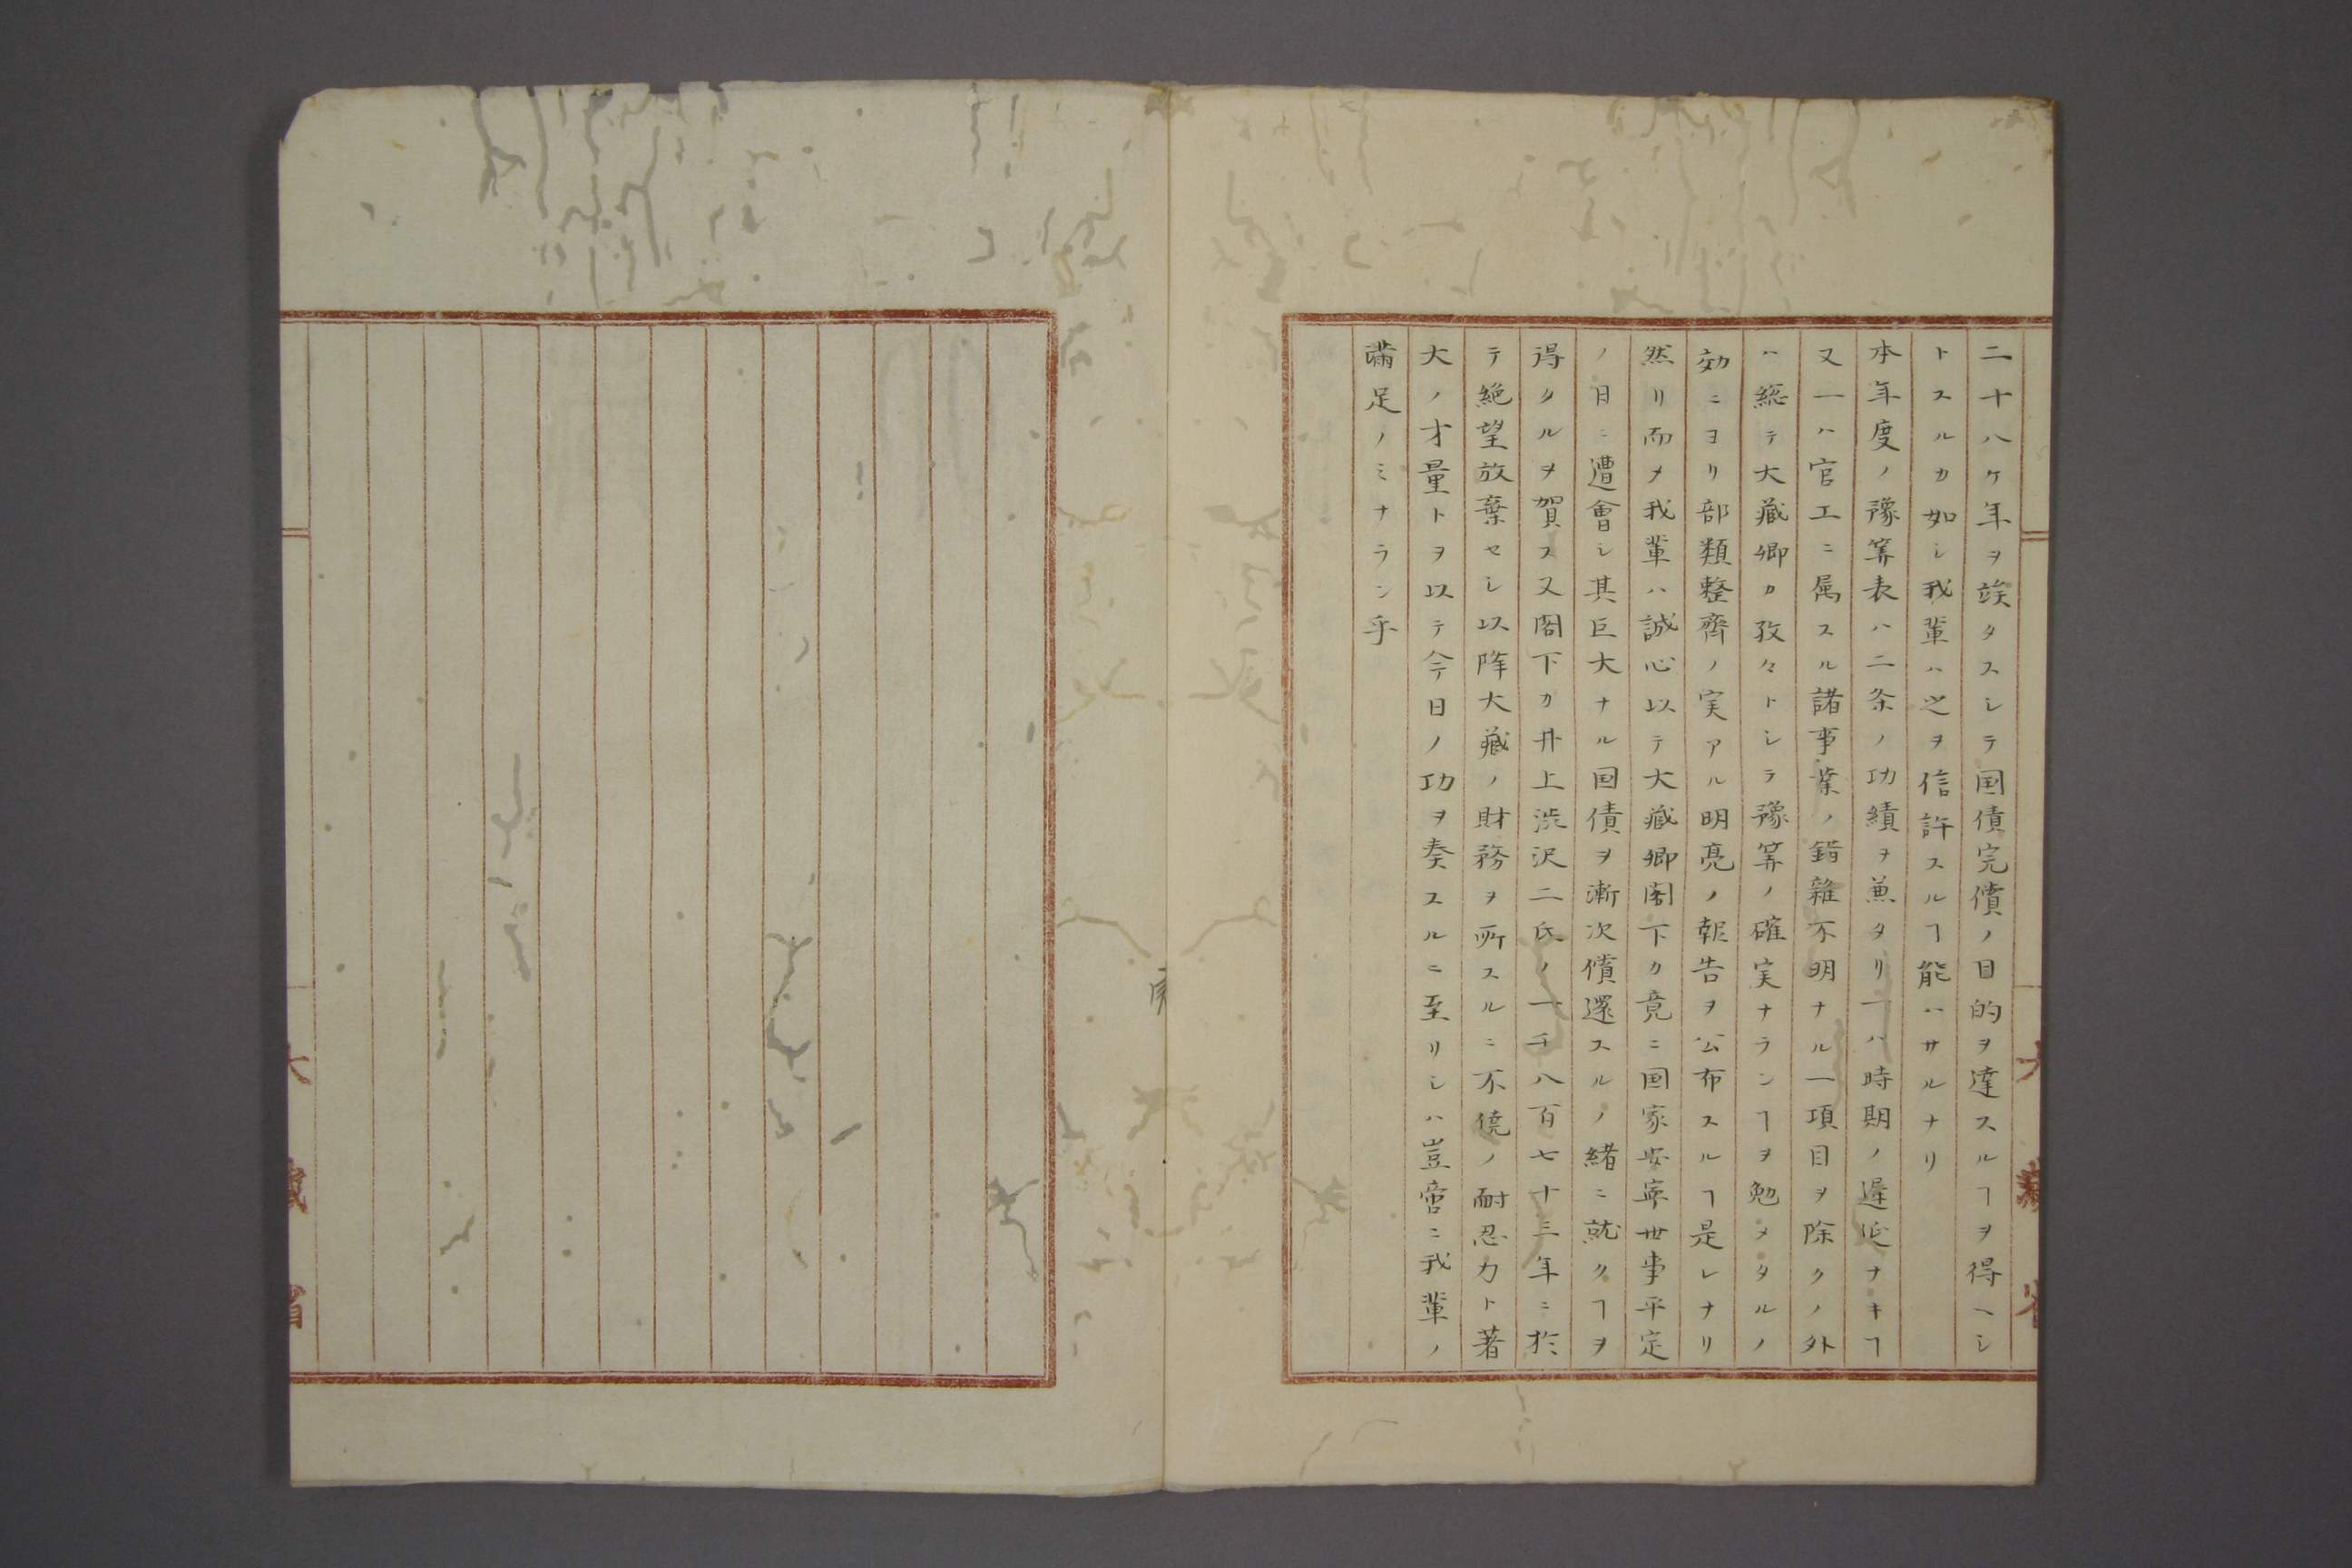 二十八ケ年ヲ竢タスシテ国債完償ノ目的ヲ達スルヿヲ得ヘシ
トスルカ如シ我輩ハ之ヲ信許スルヿ能ハサルナリ
本年度ノ豫筭表ハ二条ノ功績ヲ兼タリ一ハ時期ノ遅延ナキヿ
又一ハ官工ニ属スル諸事業ノ錯雜不明ナル一項目ヲ除クノ外
ハ総テ大藏卿カ孜々トシテ豫筭ノ確実ナランヿヲ勉メタルノ
効ニヨリ部類整齊ノ実アル明亮ノ報告ヲ公布スルヿ是レナリ
然リ而メ我輩ハ誠心以テ大藏卿閣下カ竟ニ国家安寧世事平定
ノ日ニ遭會シ其巨大ナル国債ヲ漸次償還スルノ緒ニ就クヿヲ
得タルヲ賀ス又閣下カ井上渋沢二氏ノ一千八百七十三年ニ於
テ絶望放棄セシ以降大藏ノ財務ヲ所スルニ不撓ノ耐忍力ト著
大ノ才量トヲ以テ今日ノ功ヲ奏スルニ至リシハ豈啻ニ我輩ノ
滿足ノミナラン乎
大藏省
大藏省